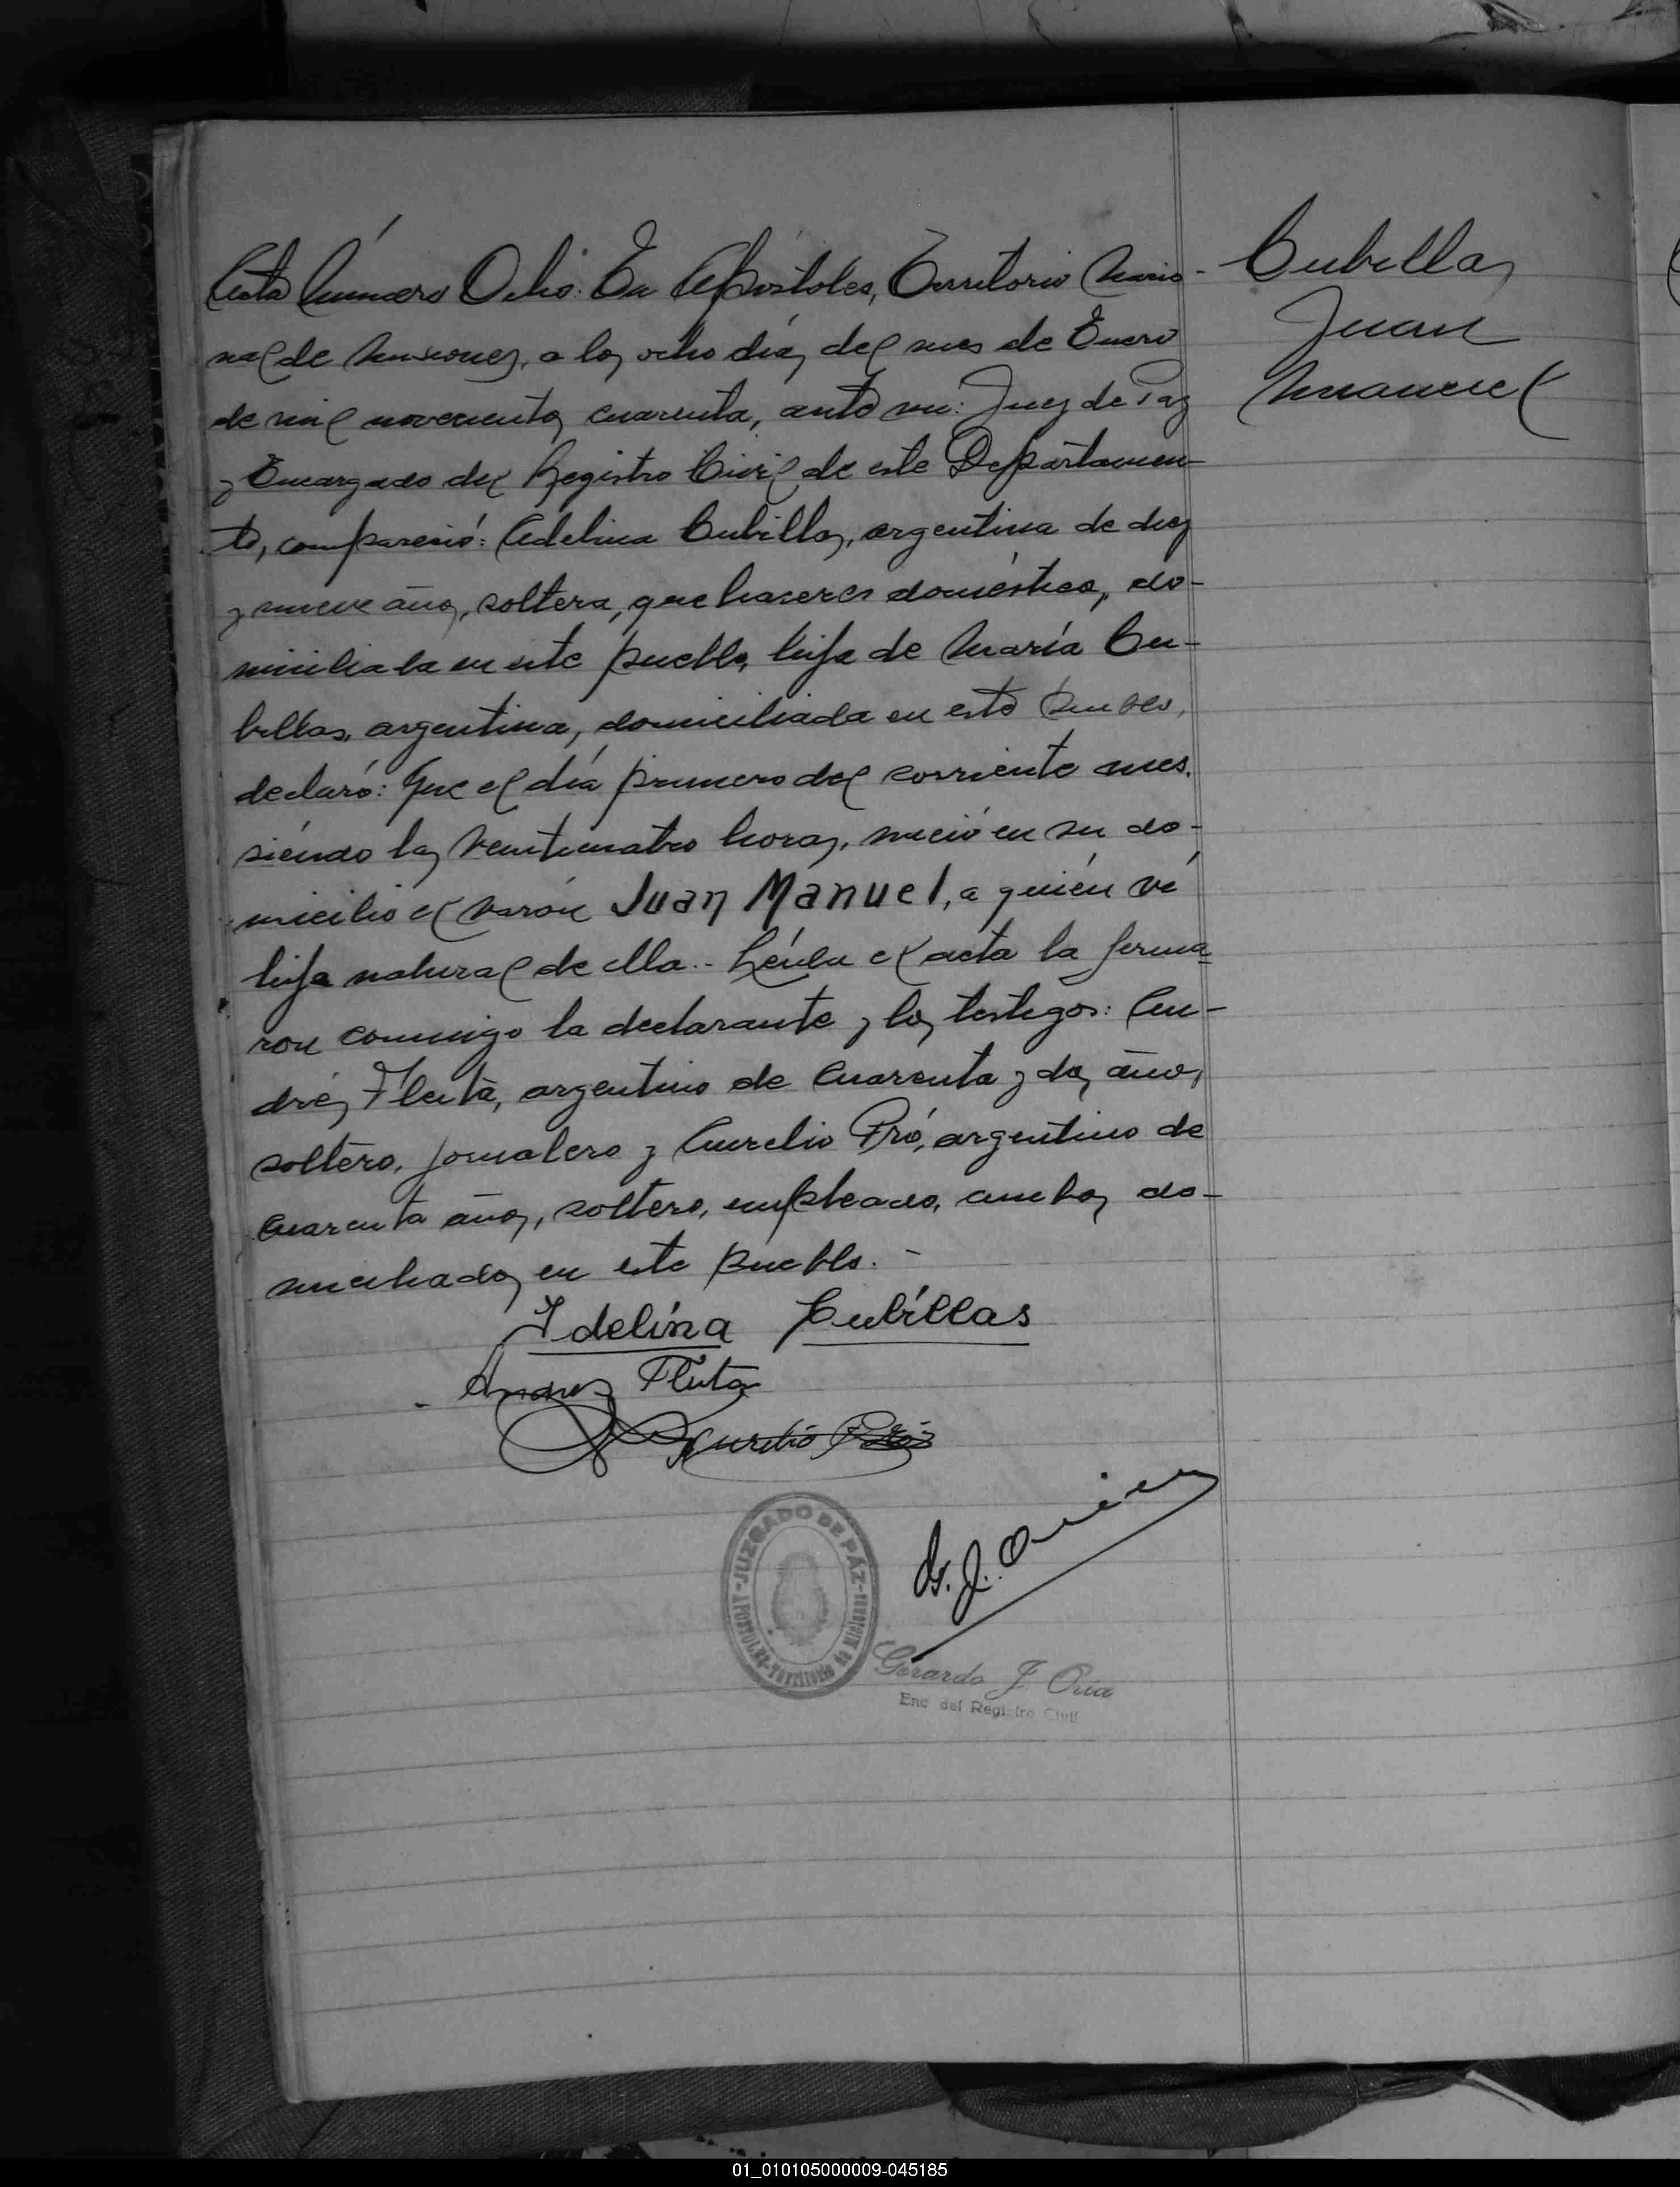 Acta Número Ocho: En Apóstoles, Territorio Nacio-
nal de Misiones, a los ocho días del mes de Enero
de mil novecientos cuarenta, ante mi: Juez de Paz
y Encargado del Registro Civil de este Departamen-
to, compareció: Adelina Cubillas, argentina de diez
y nueve años, soltera, quehaceres domésticos, do-
miciliada en este pueblo, hija de María Cu-
billas, argentina, domiciliada en este pueblo,
declaró: Que el día primero del corriente mes,
siendo las veinticuatro horas, nació en su do-
micilio el varón Juan Manuel, a quién vé
hijo natural de ella.- Leída el acta la firma-
ron conmigo la declarante y los testigos: An-
drés Fleita, argentino de cuarenta y dos años,
soltero, jornalero y Aurelio Pró, argentino de
cuarenta años, soltero, empleado, ambos do-
miciliados en este pueblo.-
Cubillas
Juan
Manuel
Idelina Cubillas
Andres Fleita
Aurelio
G. J. Oria
JUZGADO DE PÁZ
APOSTOLES-Territorio de Misiones
Gerardo J. Oria
Enc del Registro Civil
01_010105000009-045185